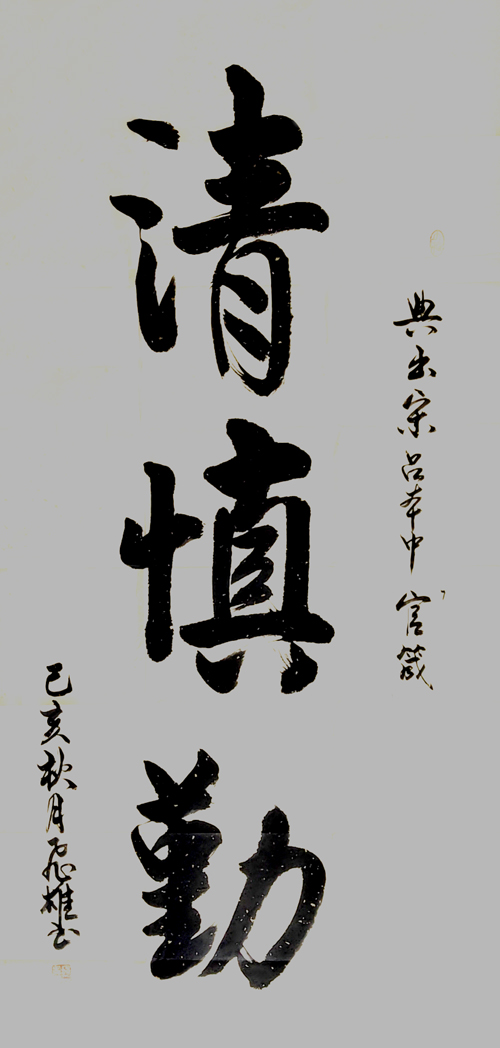 典出宋吕本中官箴
清慎勤
己亥秋月飛雄书